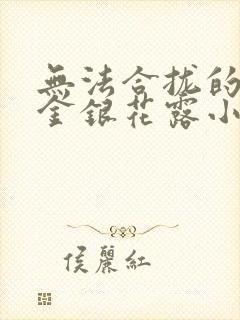 無法合拢的
金銀花露小
侯麗紅